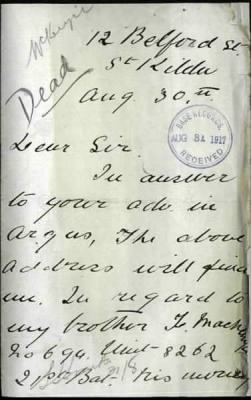 McKenzie
Dead
12 Belford St
St Kilda
Aug. 30th
BASE RECORDS.
AUG 31 1917
RECEIVED
Dear Sir.
In answer
to your adv. in
Argus, The above
address will find
me. In regard to
my brother
No 694. Unit 8262
21st Bat. his